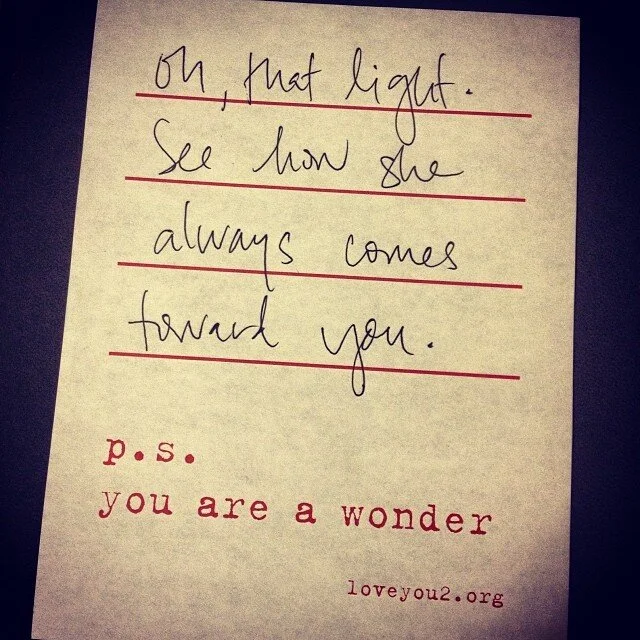 Oh, that light.
See how she
always comes
toward you.
p.s.
you are a wonder
loveyou2.org